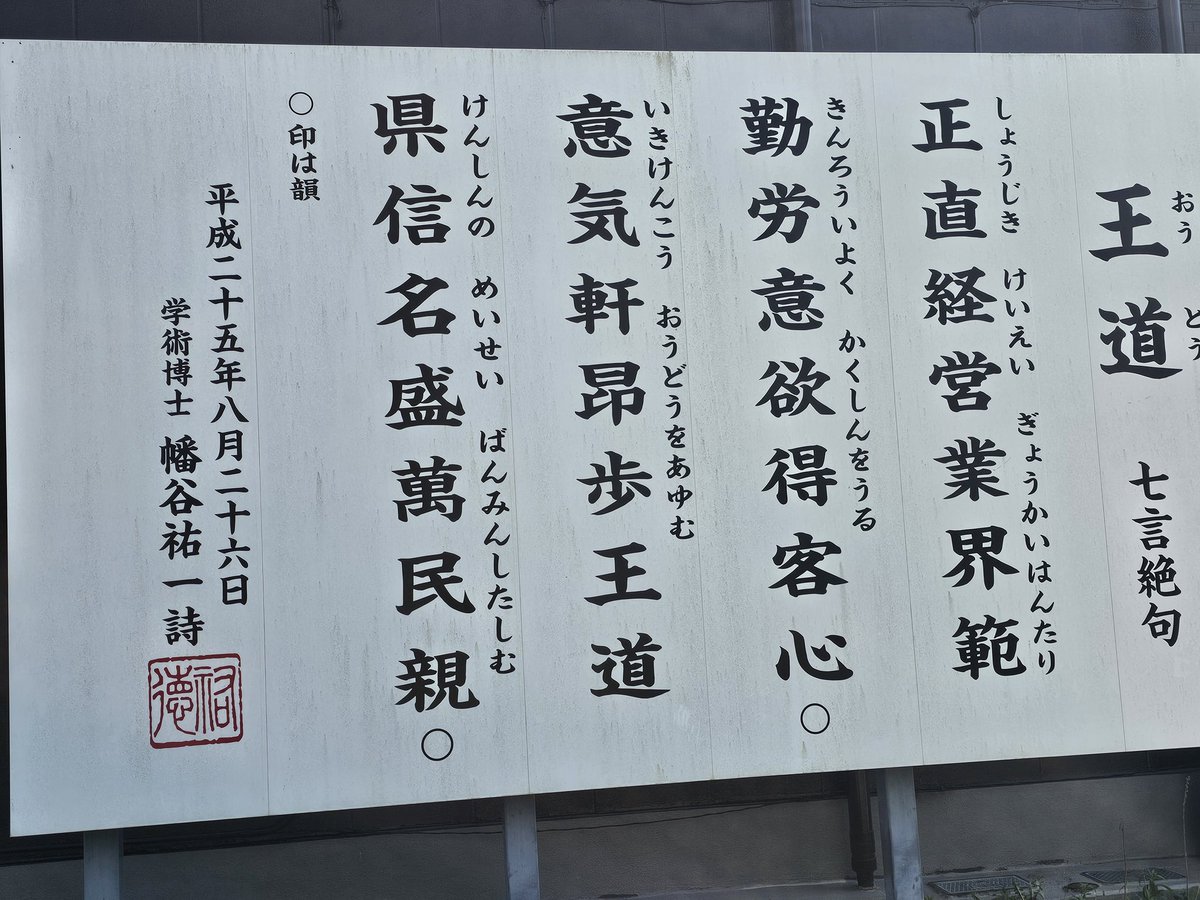 おうどう
王道
七言絶句
しょうじき けいえい ぎょうかいはんたり
正直経営業界範
きんろういよく かくしんをうる
勤労意欲得客心○
いきけんこう おうどうをあゆむ
意気軒昂歩王道
けんしんの めいせい ばんみんしたしむ
県信名盛萬民親○
○印は韻
平成二十五年八月二十六日
学術博士 幡谷祐一詩